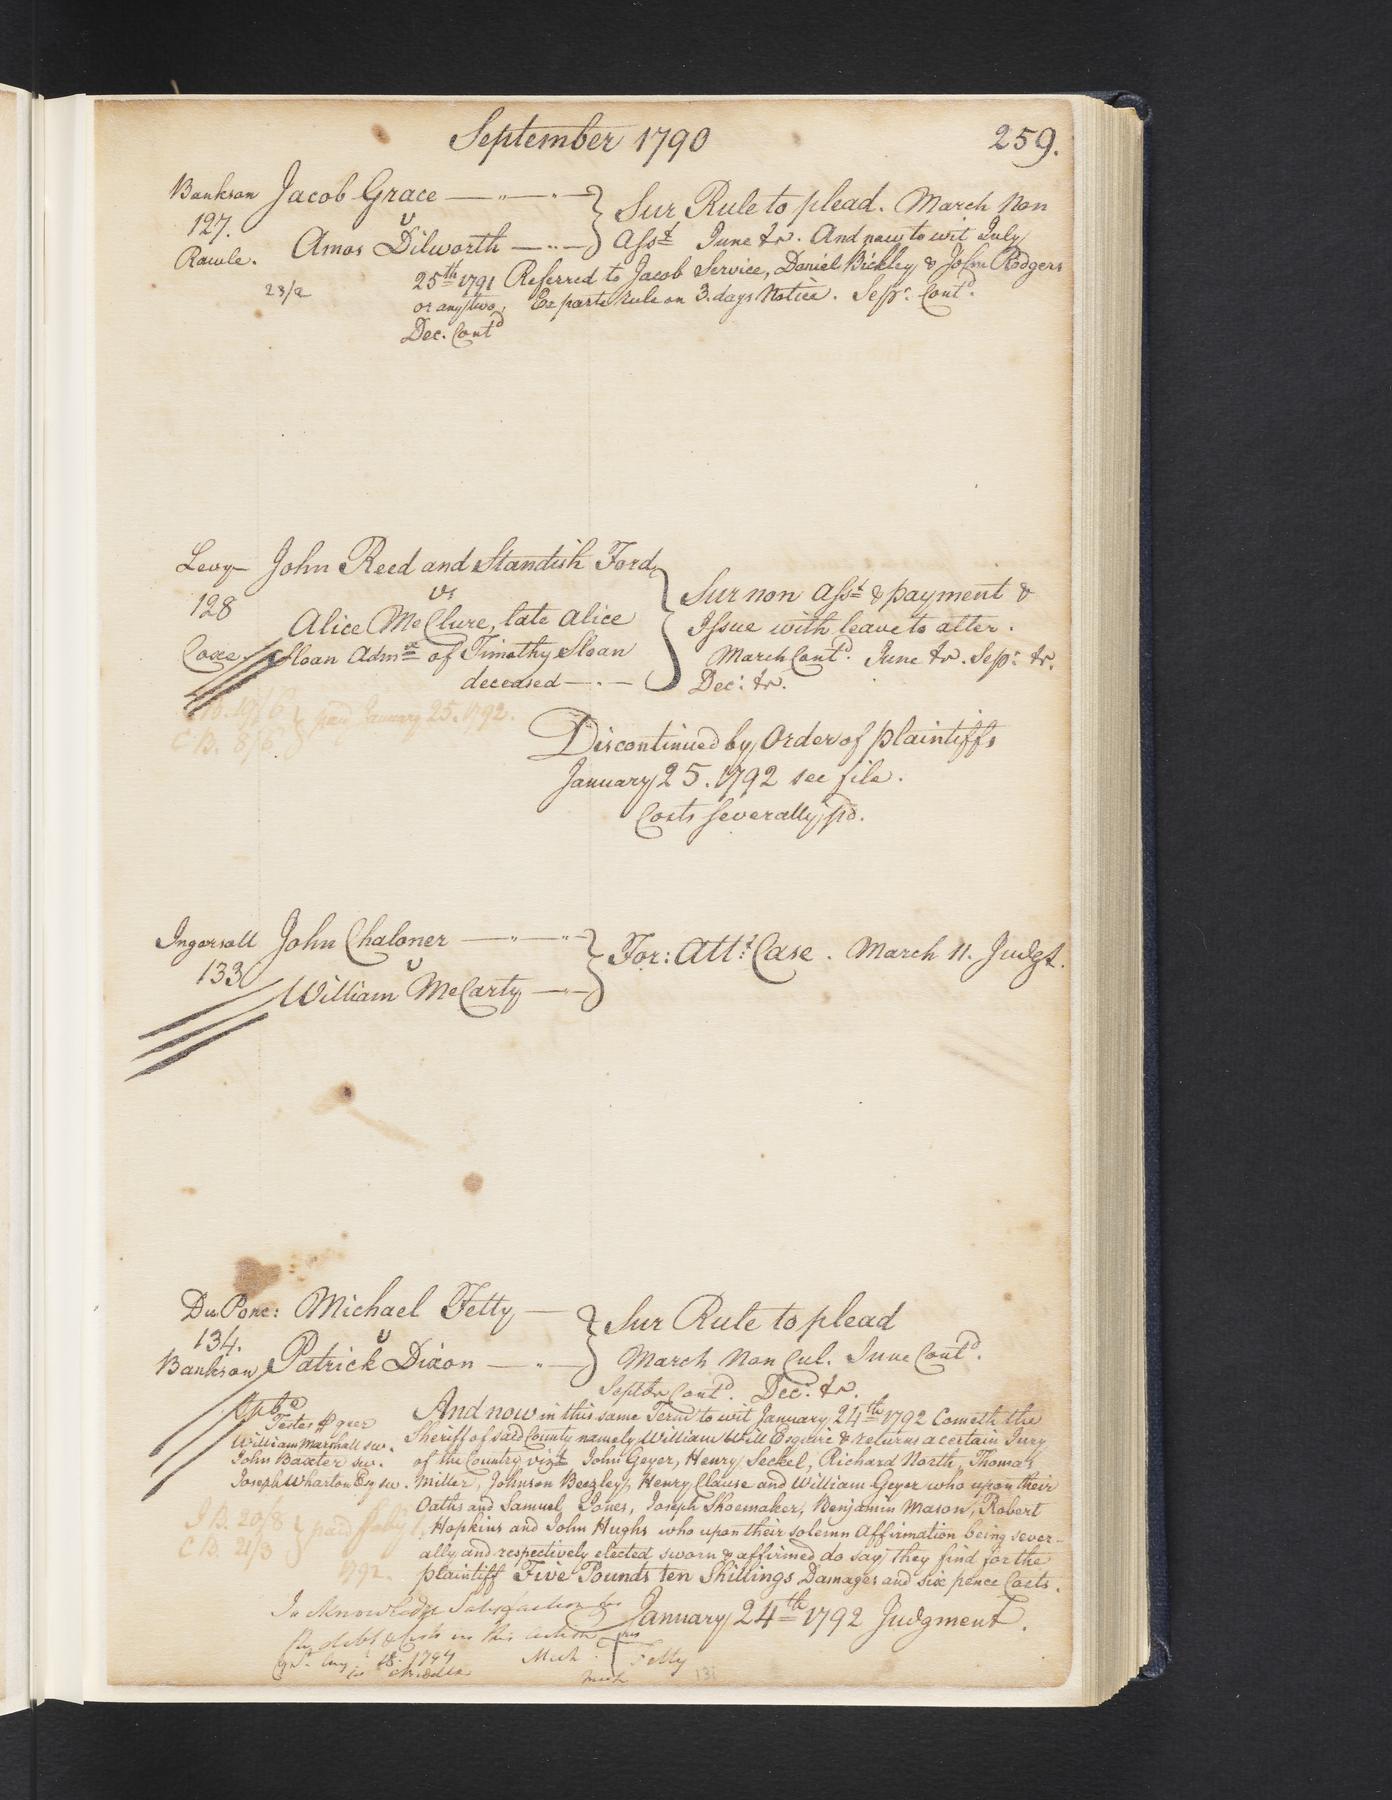 September 1790 259.
Bankson Jacob Grace
127. v
Rawle. Amos Dilworth
Sur Rule to plead. March Non
Asst June &r. And now to wit July
25th 1791 Referred to Jacob Service, Daniel Bickley & John Rodgers
or any two, Ex parte rule on 3. days Notice. Sepr. Contd.
Dec. Contd
23/2
Levy John Reed and Standish Ford
vs
128 Alice McClure, late Alice
Coxe. Sloan Admx of Timothy Sloan
deceased
Sur non Asst & payment &
Issue with leave to alter.
March Contd. June &r. Sepr. &r.
Dec: &r.
19/6 paid January 25. 1792.
C B. 8/6
Discontinued by Order of plaintiffs
January 25. 1792 see file.
Costs severally pd.
Ingersoll John Chaloner
133 v
William McCarty
For: Att: Case. March 11. Judgt.
DuPonc: Michael Fetty
134. v
Bankson Patrick Dixon
Sur Rule to plead
March Non Cul. June Contd.
Septr Contd. Dec: &r.
Testes
William Marshall sw.
John Baxter sw.
Joseph Wharton Esq sw.
And now in this same Term to wit January 24th 1792 Cometh the
Sheriff of said County namely William Will Esquire & returns a certain Jury
of the Country vizt John Geyer, Henry Seckel, Richard North, Thomas
Miller, Johnson Beezley, Henry Clause and William Geyer who upon their
Oaths and Samuel Jones, Joseph Shoemaker, Benjamin Mason, Robert
Hopkins and John Hughs who upon their solemn Affirmation being sever-
ally and respectively elected sworn & affirmed do say they find for the
plaintiff Five Pounds ten Shillings Damages and six pence Costs.
J B. 20/8 paid
C B. 21/3
1792.
January 24th 1792 Judgment.
Acknowledge Satisfaction
debt & Costs in this action
his
Mich Fetty
mark
131